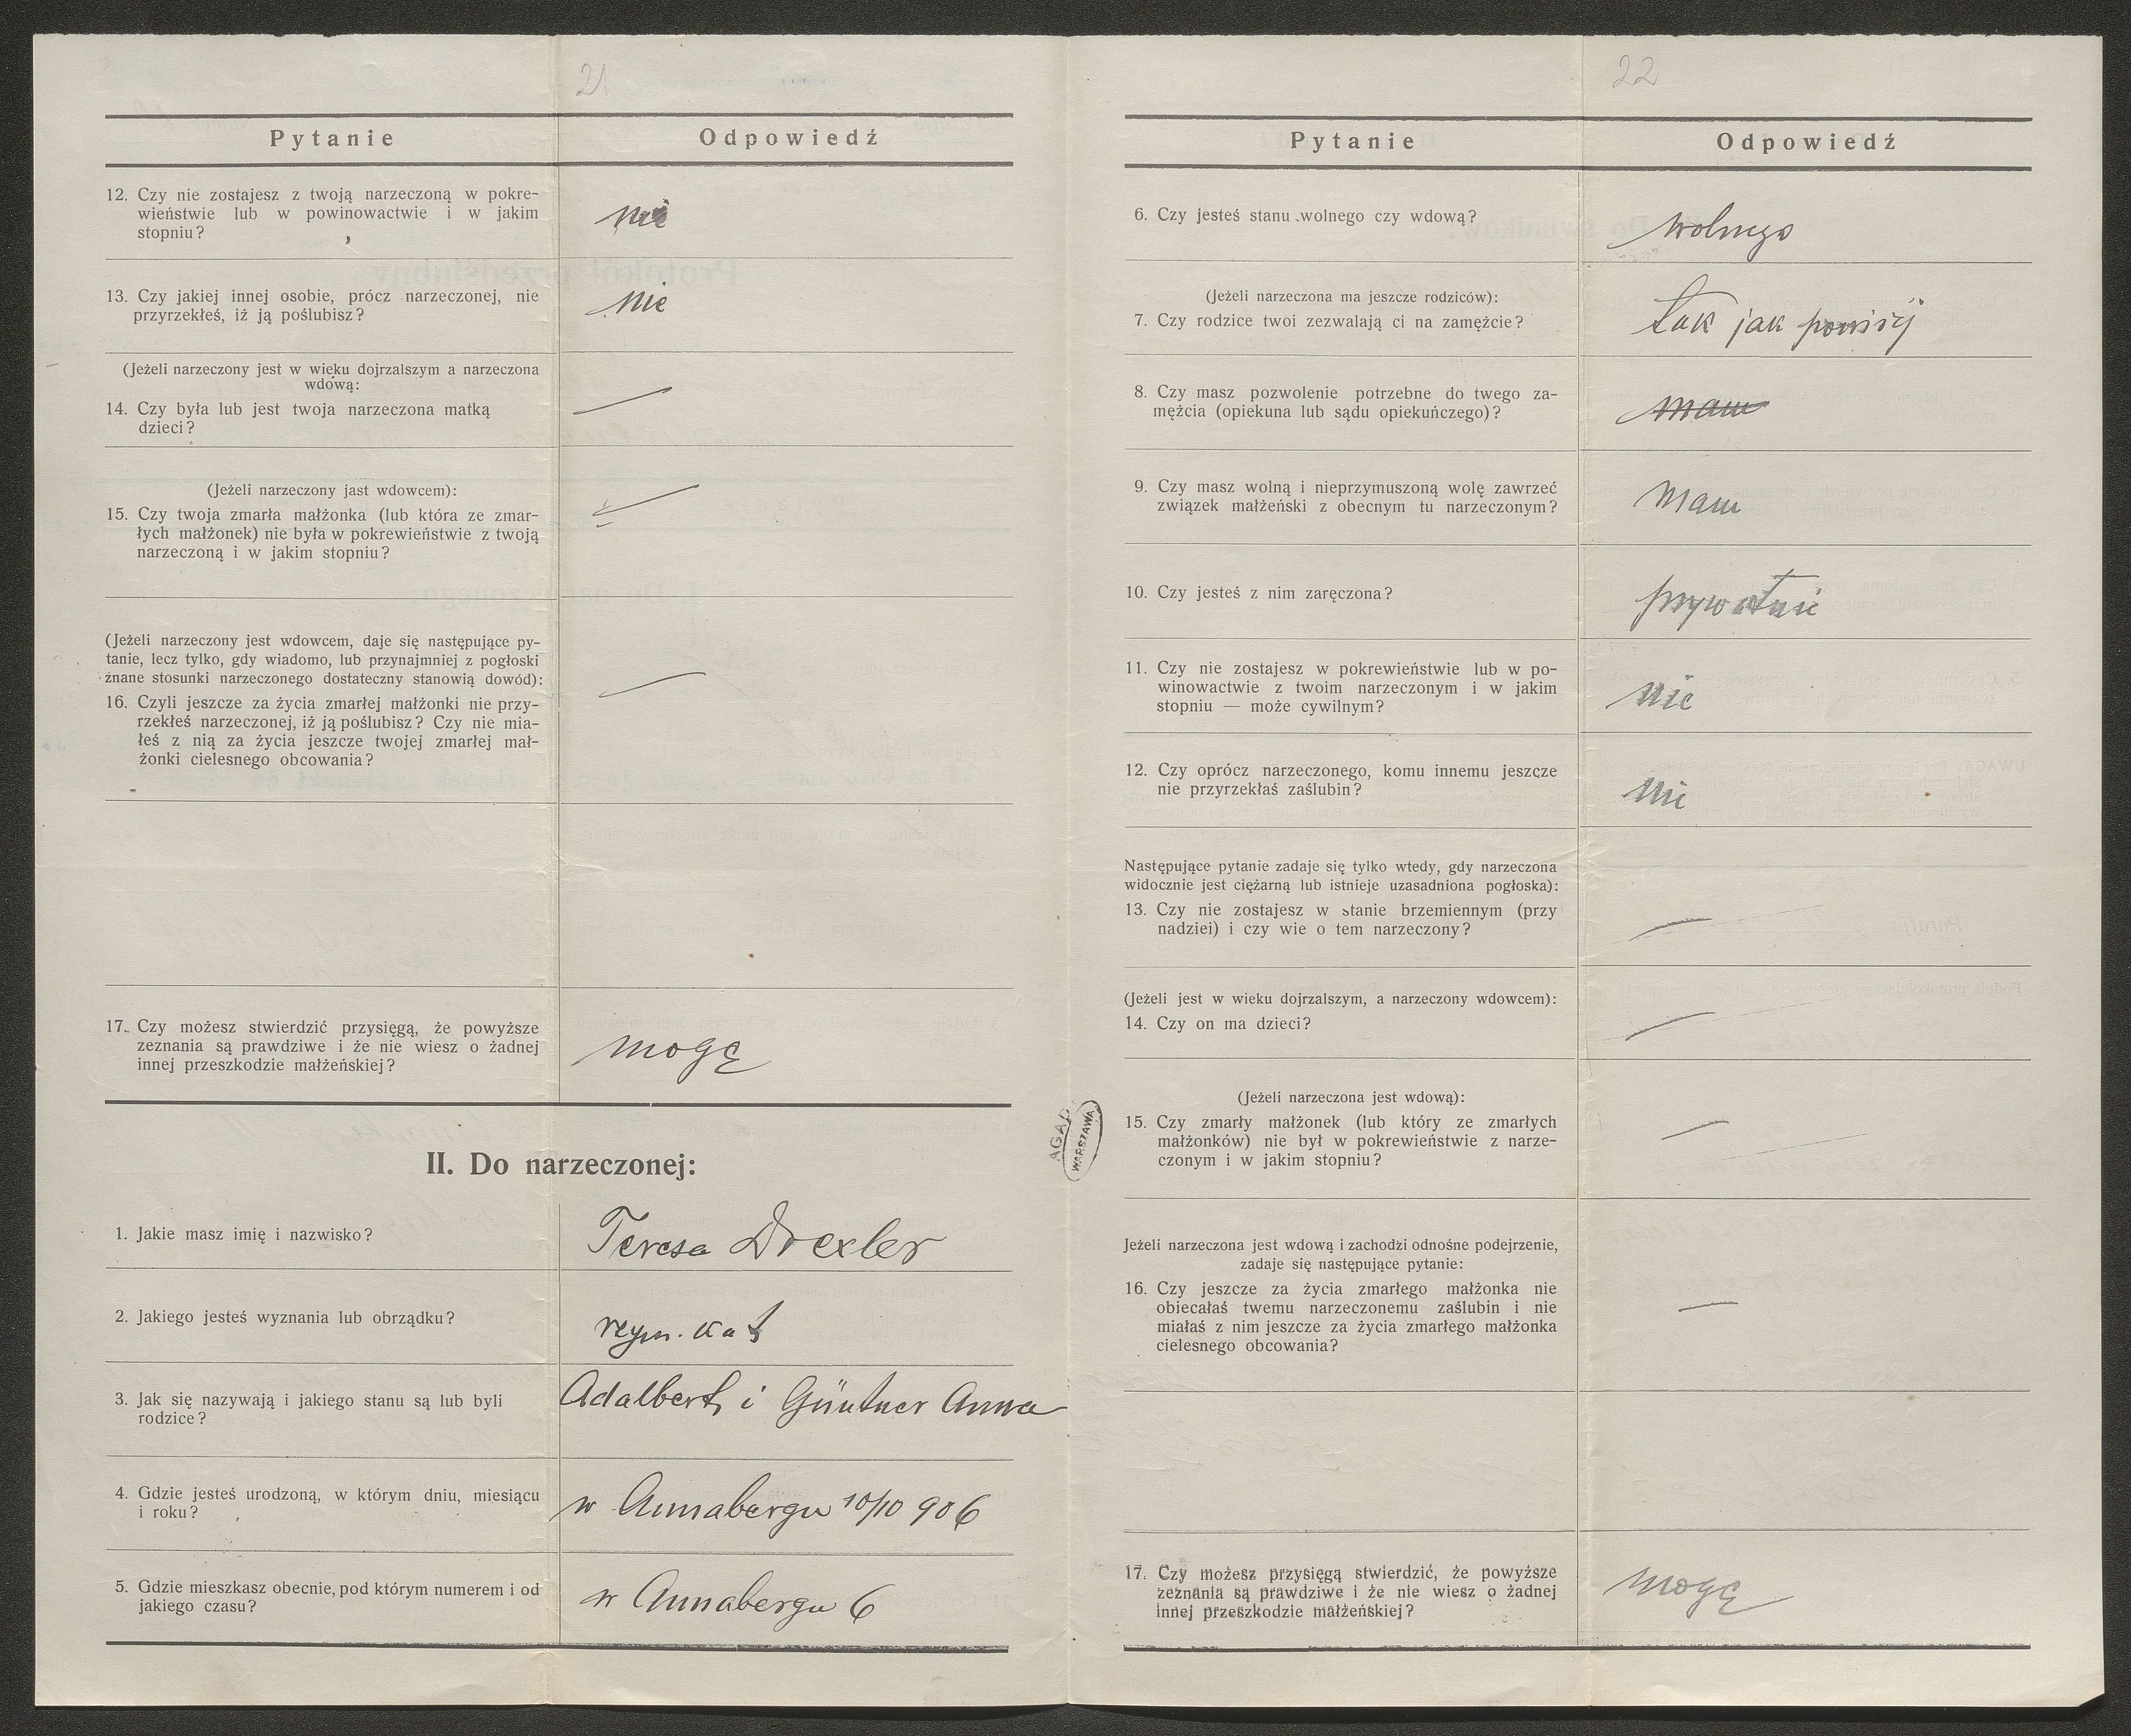 21
Pytanie Odpowiedź
12. Czy nie zostajesz z twoją narzeczoną w pokre-
wieństwie lub w powinowactwie i w jakim
stopniu?
nie
13. Czy jakiej innej osobie, prócz narzeczonej, nie
przyrzekłeś, iż ją poślubisz?
nie
(Jeżeli narzeczony jest w wieku dojrzalszym a narzeczona
wdową:
14. Czy była lub jest twoja narzeczona matką
dzieci?
(Jeżeli narzeczony jast wdowcem):
15. Czy twoja zmarła małżonka (lub która ze zmar-
łych małżonek) nie była w pokrewieństwie z twoją
narzeczoną i w jakim stopniu?
(Jeżeli narzeczony jest wdowcem, daje się następujące py-
tanie, lecz tylko, gdy wiadomo, lub przynajmniej z pogłoski
żnane stosunki narzeczonego dostateczny stanowią dowód):
16. Czyli jeszcze za życia zmarłej małżonki nie przy-
rzekłeś narzeczonej, iż ją poślubisz? Czy nie mia-
łeś z nią za życia jeszcze twojej zmarłej mał-
żonki cielesnego obcowania?
17. Czy możesz stwierdzić przysięgą, że powyższe
zeznania są prawdziwe i że nie wiesz o żadnej
innej przeszkodzie małżeńskiej?
mogę
II. Do narzeczonej:
1. Jakie masz imię i nazwisko?
Teresa Drexler
2. Jakiego jesteś wyznania lub obrządku?
rzym. kat
3. Jak się nazywają i jakiego stanu są lub byli
rodzice?
Adalbert i Güntner Anna
4. Gdzie jesteś urodzoną, w którym dniu, miesiącu
i roku?
w Annabergu 10/10 906
5. Gdzie mieszkasz obecnie, pod którym numerem i od
jakiego czasu?
w Annabergu 6
AGAD
WARSZAWA
22
Pytanie Odpowiedź
6. Czy jesteś stanu wolnego czy wdową?
wolnego
(Jeżeli narzeczona ma jeszcze rodziców):
7. Czy rodzice twoi zezwalają ci na zamężcie?
tak jak poniżij
8. Czy masz pozwolenie potrzebne do twego za-
mężcia (opiekuna lub sądu opiekuńczego)?
mam
9. Czy masz wolną i nieprzymuszoną wolę zawrzeć
związek małżeński z obecnym tu narzeczonym?
mam
10. Czy jesteś z nim zaręczona?
prywatnie
11. Czy nie zostajesz w pokrewieństwie lub w po-
winowactwie z twoim narzeczonym i w jakim
stopniu — może cywilnym?
nie
12. Czy oprócz narzeczonego, komu innemu jeszcze
nie przyrzekłaś zaślubin?
nie
Następujące pytanie zadaje się tylko wtedy, gdy narzeczona
widocznie jest ciężarną lub istnieje uzasadniona pogłoska):
13. Czy nie zostajesz w stanie brzemiennym (przy
nadziei) i czy wie o tem narzeczony?
(Jeżeli jest w wieku dojrzalszym, a narzeczony wdowcem):
14. Czy on ma dzieci?
(Jeżeli narzeczona jest wdową):
15. Czy zmarły małżonek (lub który ze zmarłych
małżonków) nie był w pokrewieństwie z narze-
czonym i w jakim stopniu?
Jeżeli narzeczona jest wdową i zachodzi odnośne podejrzenie,
zadaje się następujące pytanie:
16. Czy jeszcze za życia zmarłego małżonka nie
obiecałaś twemu narzeczonemu zaślubin i nie
miałaś z nim jeszcze za życia zmarłego małżonka
cielesnego obcowania?
17. Czy możesz przysięgą stwierdzić, że powyższe
zeznania są prawdziwe i że nie wiesz o żadnej
innej przeszkodzie małżeńskiej?
mogę